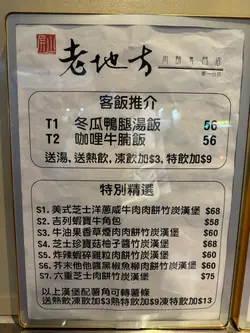 老地方
客飯推介
T1 冬瓜鴨腿湯飯 56
T2 咖哩牛腩飯 56
送湯,送熱飲,凍飲加$3,特飲加$9
特別精選
S1. 美式芝士洋蔥咸牛肉肉餅竹炭漢堡 $68
S2. 吉列蝦寶牛角包 $58
S3. 牛油果香草煙肉肉餅竹炭漢堡 $68
S4. 芝士珍寶菇柚子醬竹炭漢堡 $58
S5. 炸辣蝦碎雞粒竹炭漢堡 $58
S6. 芥末他他醬黑椒魚柳竹炭漢堡 $60
S7. 六重芝士肉餅竹炭漢堡 $75
以上漢堡配薯角可轉薯條
送熱飲凍飲加$3熱特飲加$9凍特飲加$13